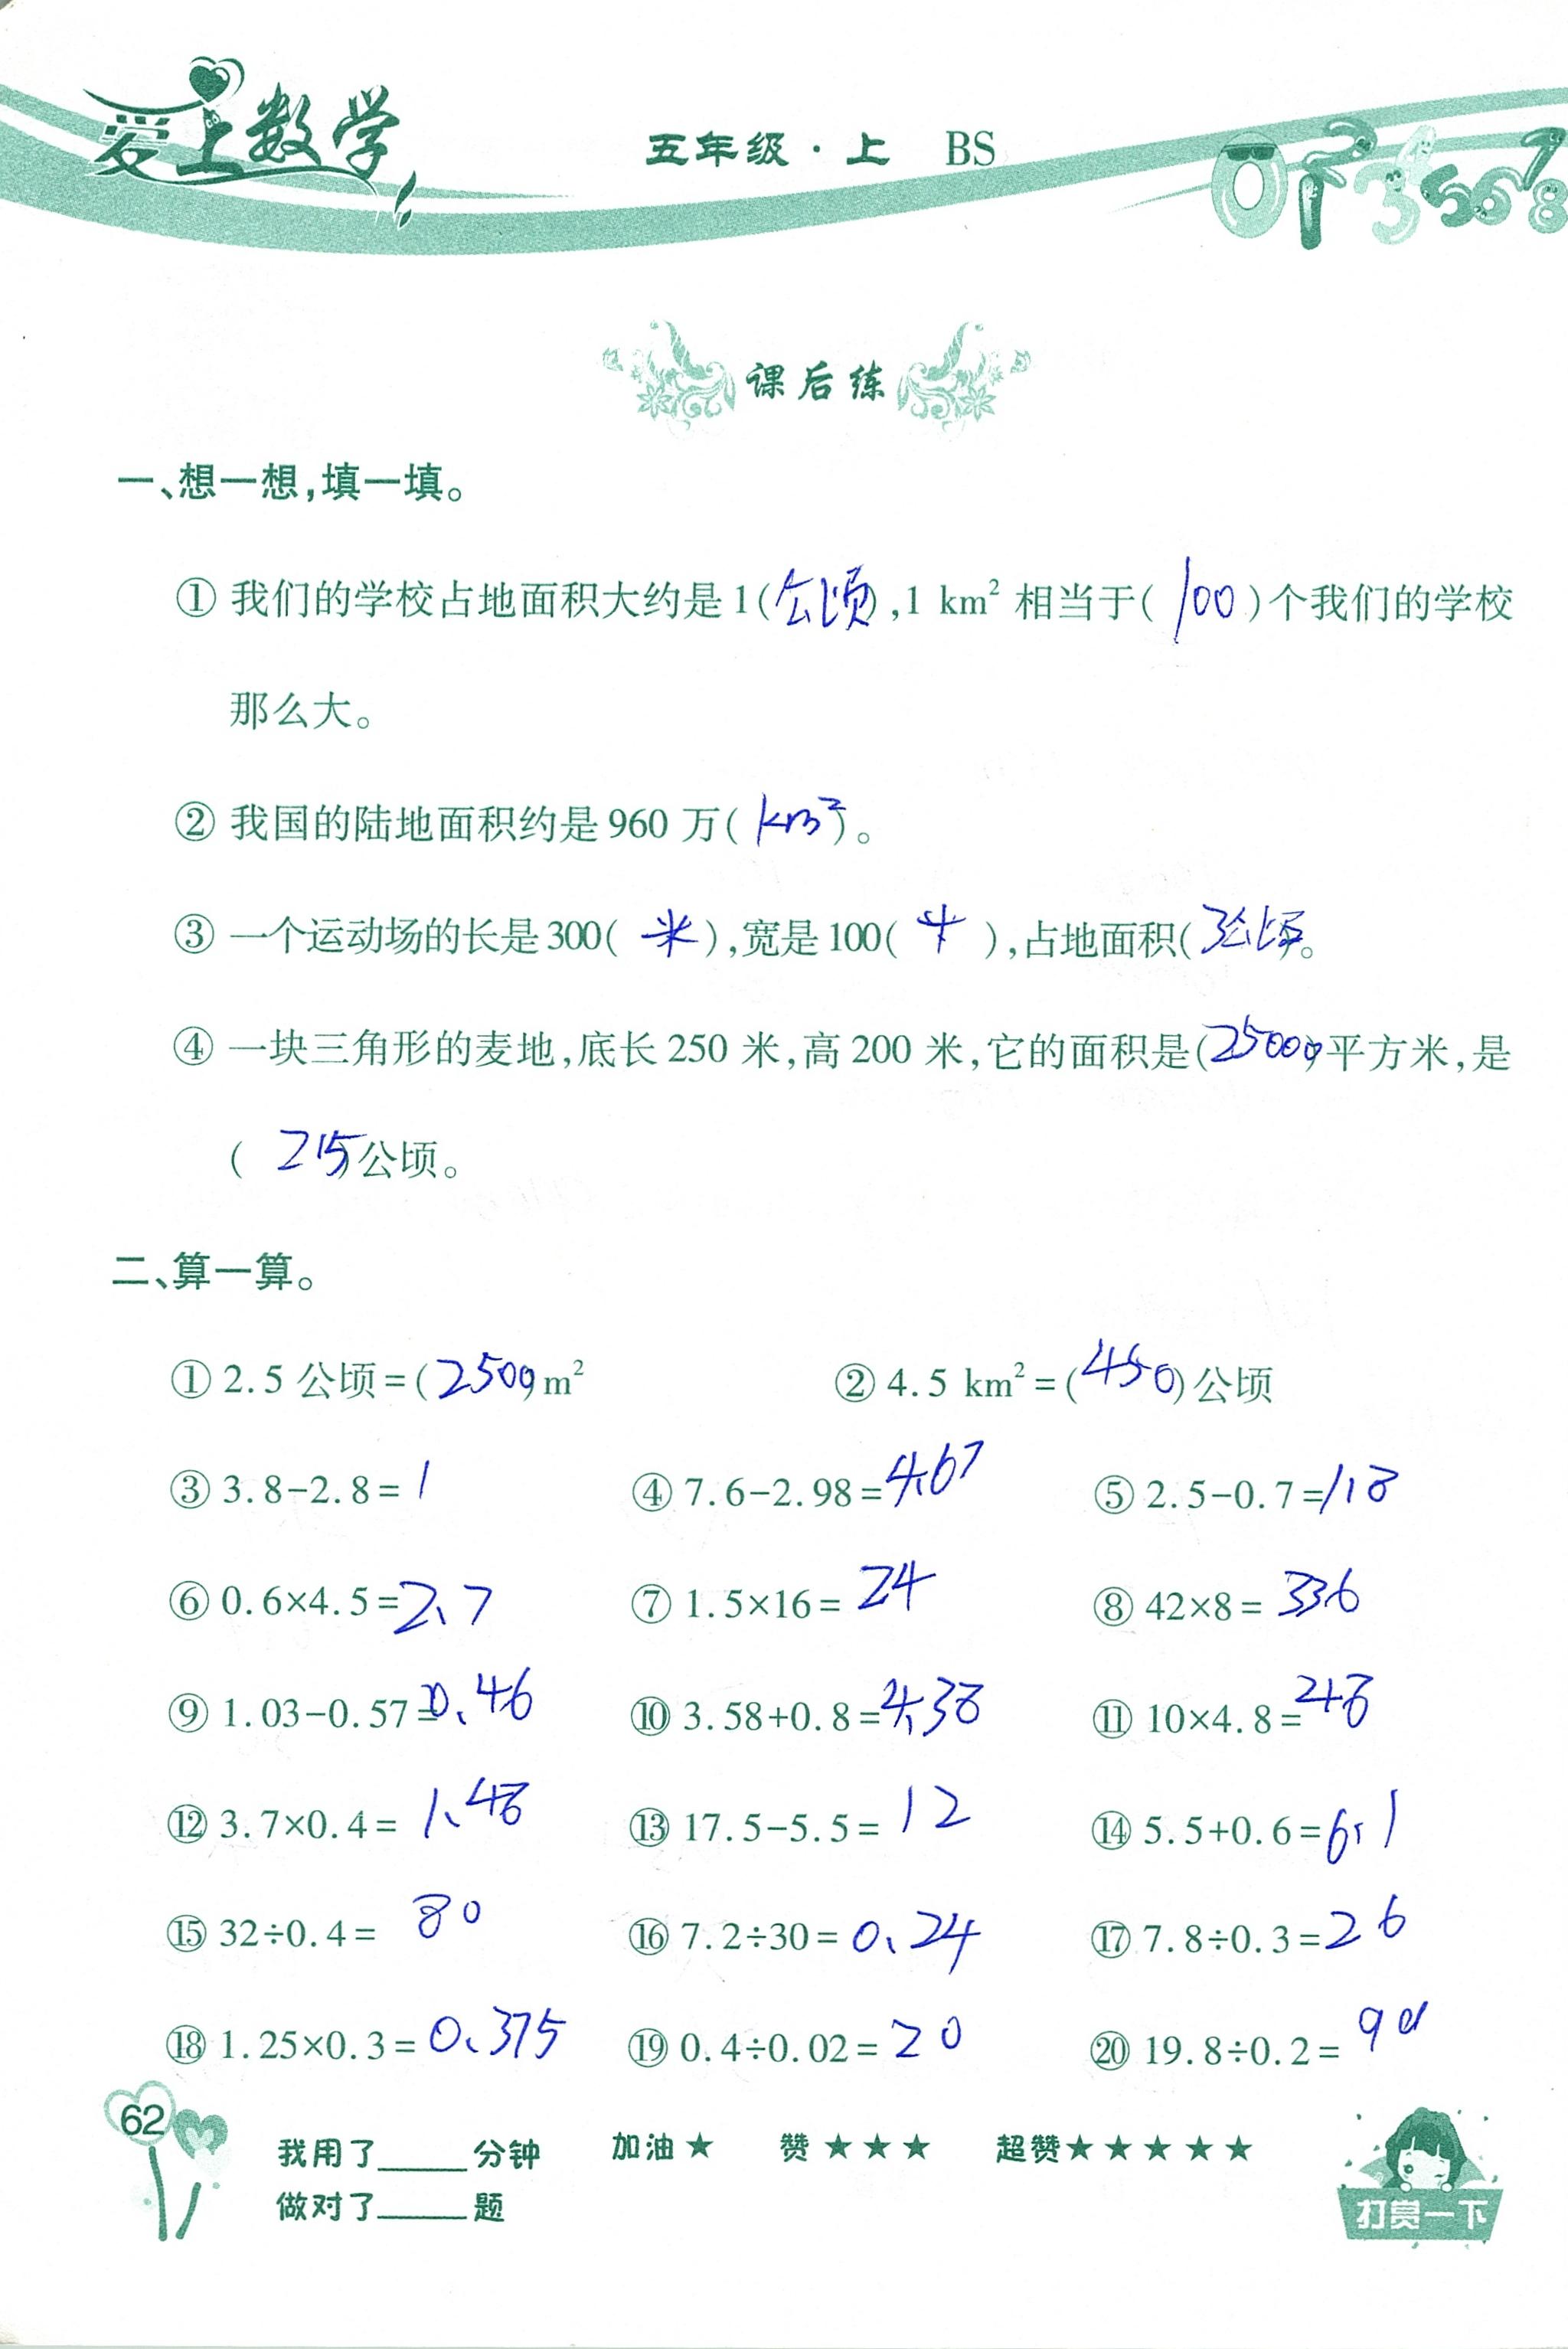 爱上数学
五年级·上 BS
课后练
一、想一想,填一填。
① 我们的学校占地面积大约是1(公顷),1 km²相当于( 100 )个我们的学校
那么大。
② 我国的陆地面积约是960万( km² )。
③ 一个运动场的长是300( 米 ),宽是100( 米 ),占地面积(3公顷)。
④ 一块三角形的麦地,底长250米,高200米,它的面积是(25000)平方米,是
( 2.5 )公顷。
二、算一算。
① 2.5公顷=(2500)m² ② 4.5 km²=(450)公顷
③ 3.8-2.8=1 ④ 7.6-2.98=4.67 ⑤ 2.5-0.7=1.8
⑥ 0.6×4.5=2.7 ⑦ 1.5×16=24 ⑧ 42×8=336
⑨ 1.03-0.57=0.46 ⑩ 3.58+0.8=4.38 ⑪ 10×4.8=48
⑫ 3.7×0.4=1.48 ⑬ 17.5-5.5=12 ⑭ 5.5+0.6=6.1
⑮ 32÷0.4=80 ⑯ 7.2÷30=0.24 ⑰ 7.8÷0.3=26
⑱ 1.25×0.3=0.375 ⑲ 0.4÷0.02=20 ⑳ 19.8÷0.2=
62
我用了____分钟 加油★ 赞★★★ 超赞★★★★★
做对了____题
打赏一下